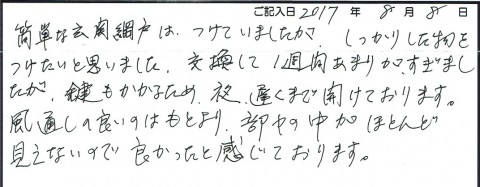 ご記入日 2017 年 8 月 8 日
簡単な玄関網戸は、つけていましたが しっかりした物を
つけたいと思いました。交換して1週間あまりが、すぎまし
たが、鍵もかかるため、夜、遅くまで開けております。
風通しの良いのはもとより、部屋の中がほとんど
見えないので良かったと感じております。